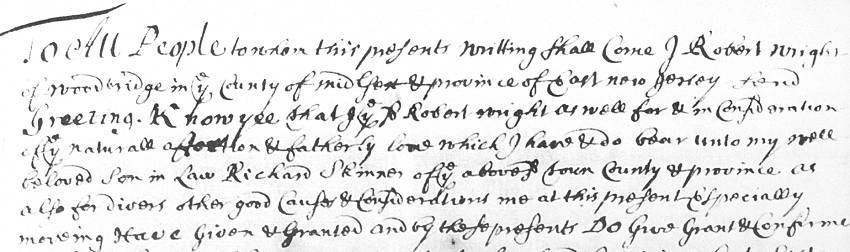 To All People to whom this presents writting shall Come I Robert Wright
of Woodbridge in ye County of midlsex & province of East new Jersey send
Greeting. Know yee that I ye sd Robert wright as well for & in Consideration
of ye naturall affection & fatherly love which I have & do bear unto my well
beloved Son in Law Richard Skinner of ye abovesd town County & province as
also for divers other good Causes & Considerations me at this present Especially
moveing Have Given & Granted and by these presents Do Give Grant & Confirme